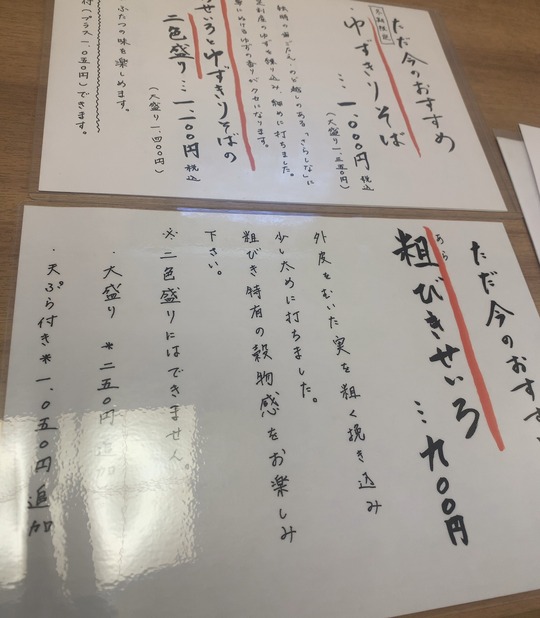 ただ今のおすすめ
定期限定
・ゆずきりそば
…一、000円 税込
(大盛り一、二五0円)
独特の歯ごたえ、のど越しのある「さらしな」に
高知産のゆずを練り込み、細めに打ちました。
鼻にぬけるゆずの香りがクセになります。
せいろとゆずきりそばの
二色盛り…一、一00円 税込
(大盛り一、四00円)
ふたつの味を楽しめます。
付(プラス一、0五0円)できます。
ただ今のおすす
あら
粗びきせいろ
…九00円
外皮をむいた実を粗く挽き込み
少し太めに打ちました。
粗びき特有の穀物感をお楽しみ
下さい。
※二色盛りにはできません。
・大盛り *二五0円 追加
・天ぷら付き*一、0五0円 追加